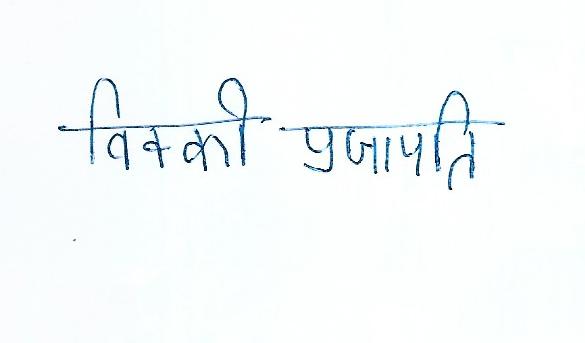 विक्की प्रजापति